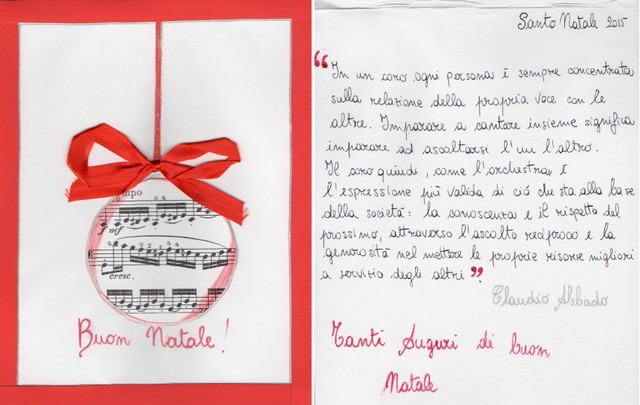 mpo
mf
cresc.
Buon Natale!
Santo Natale 2015
“In un coro ogni persona è sempre concentrata
sulla relazione della propria voce con le
altre. Imparare a cantare insieme significa
imparare ad ascoltarsi l'un l'altro.
Il coro quindi, come l'orchestra, è
l'espressione più valida di ciò che sta alla base
della società: la conoscenza e il rispetto del
prossimo, attraverso l'ascolto reciproco e la
generosità nel mettere le proprie risorse migliori
a servizio degli altri”
Claudio Abbado
Tanti Auguri di buon
Natale